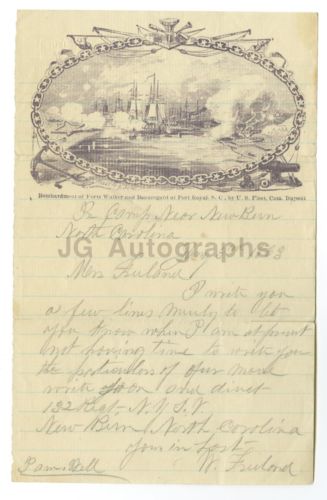 Bombardment of Forts Walker and Beauregard at Port Royal, S. C., by U. S. Fleet, Com. Dupont
In Camp Near New Bern
North Carolina
JG Autographs
Mrs Freeland
I write you
a few lines merely to let
you know where I am at present
not having time to write you
the particulars of our march
write soon and direct
132 Regt. N.Y.S.V.
New Bern North Carolina
Yours in hast
W. Freeland